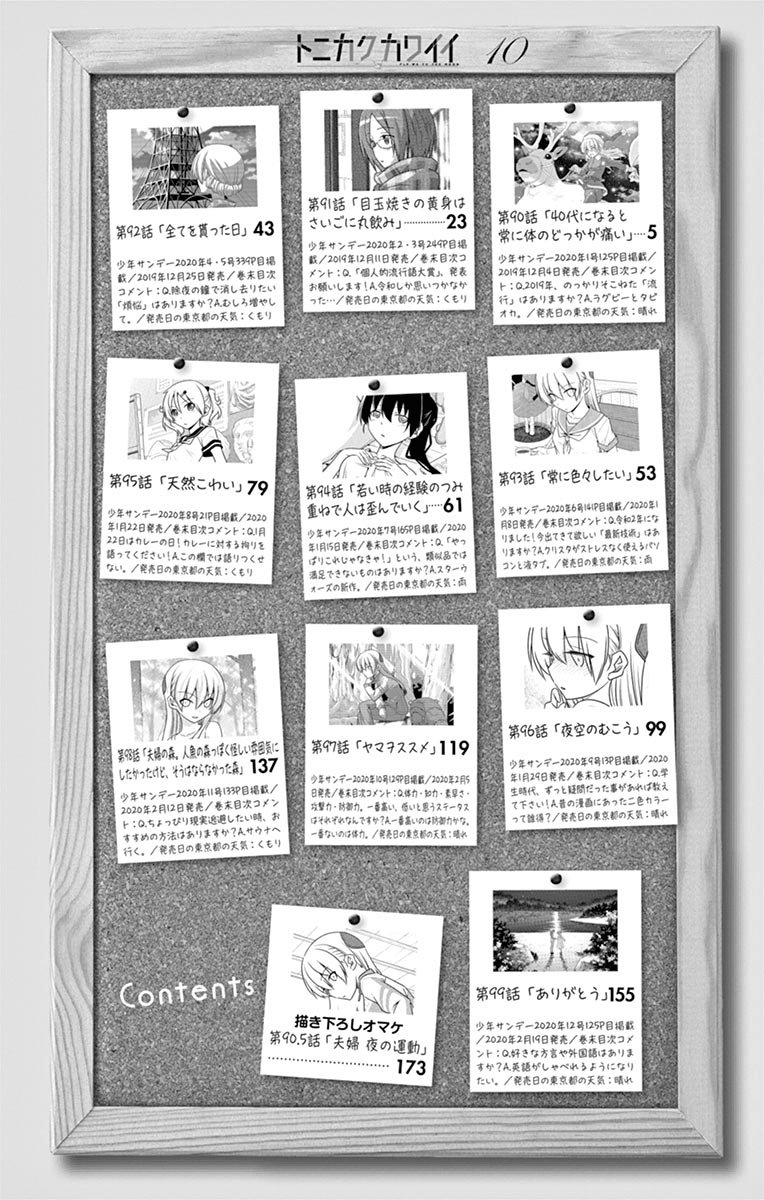 トニカクカワイイ 10
FLY ME TO THE MOON
第90話「40代になると
常に体のどっかが痛い」…5
少年サンデー2020年1号125P目掲載
/2019年12月4日発売/巻末目次コメ
ント：Q.2019年、のっかりそこねた「流
行」はありますか？A.ラグビーとタピ
オカ。/発売日の東京都の天気：晴れ
第91話「目玉焼きの黄身は
さいごに丸飲み」……………23
少年サンデー2020年2・3号249P目掲
載/2019年12月11日発売/巻末目次コ
メント：Q.「個人的流行語大賞」、発表
お願いします！A.令和しか思いつかなか
った…/発売日の東京都の天気：くもり
第92話「全てを貰った日」43
少年サンデー2020年4・5号339P目掲
載/2019年12月25日発売/巻末目次
コメント：Q.除夜の鐘で消し去りたい
「煩悩」はありますか？A.むしろ増やし
て。/発売日の東京都の天気：くもり
第93話「常に色々したい」53
少年サンデー2020年6号141P目掲載/2020年1
月8日発売/巻末目次コメント：Q.令和2年にな
りました！今出てきて欲しい「最新技術」はあ
りますか？A.クリスタがストレスなく使えるパソ
コンと液タブ。/発売日の東京都の天気：雨
第94話「若い時の経験のつみ
重ねで人は歪んでいく」……61
少年サンデー2020年7号165P目掲載/2020
年1月15日発売/巻末目次コメント：Q.「やっ
ぱりこれじゃなきゃ！」という、類似品では
満足できないものはありますか？A.スターウ
ォーズの新作。/発売日の東京都の天気：雨
第95話「天然こわい」79
少年サンデー2020年8号21P目掲載/2020
年1月22日発売/巻末目次コメント：Q.1月
22日はカレーの日！カレーに対する拘りを
語ってください！A.この欄では語りつくせ
ない。/発売日の東京都の天気：くもり
第96話「夜空のむこう」99
少年サンデー2020年9号13P目掲載/2020
年1月29日発売/巻末目次コメント：Q.学
生時代、ずっと疑問だった事があれば教え
て下さい！A.昔の漫画にあった二色カラー
って誰得？/発売日の東京都の天気：晴れ
第97話「ヤマヲススメ」119
少年サンデー2020年10号129P目掲載/2020年2月5
日発売/巻末目次コメント：Q.体力・知力・素早さ・
攻撃力・防御力。一番高い、低いと思うステータス
はそれぞれなんですか？A.一番高いのは防御力かな。
一番ないのは体力。/発売日の東京都の天気：晴れ
第98話「夫婦の森。人魚の森っぽく怪しい雰囲気に
したかったけど、そうはならなかった森」137
少年サンデー2020年11号133P目掲載/
2020年2月12日発売/巻末目次コメン
ト：Q.ちょっぴり現実逃避したい時、お
すすめの方法はありますか？A.サウナへ
行く。/発売日の東京都の天気：くもり
第99話「ありがとう」155
少年サンデー2020年12号125P目掲載
/2020年2月19日発売/巻末目次コメ
ント：Q.好きな方言や外国語はありま
すか？A.英語がしゃべれるようになり
たい。/発売日の東京都の天気：晴れ
描き下ろしオマケ
第90.5話「夫婦 夜の運動」
……………………………173
Contents